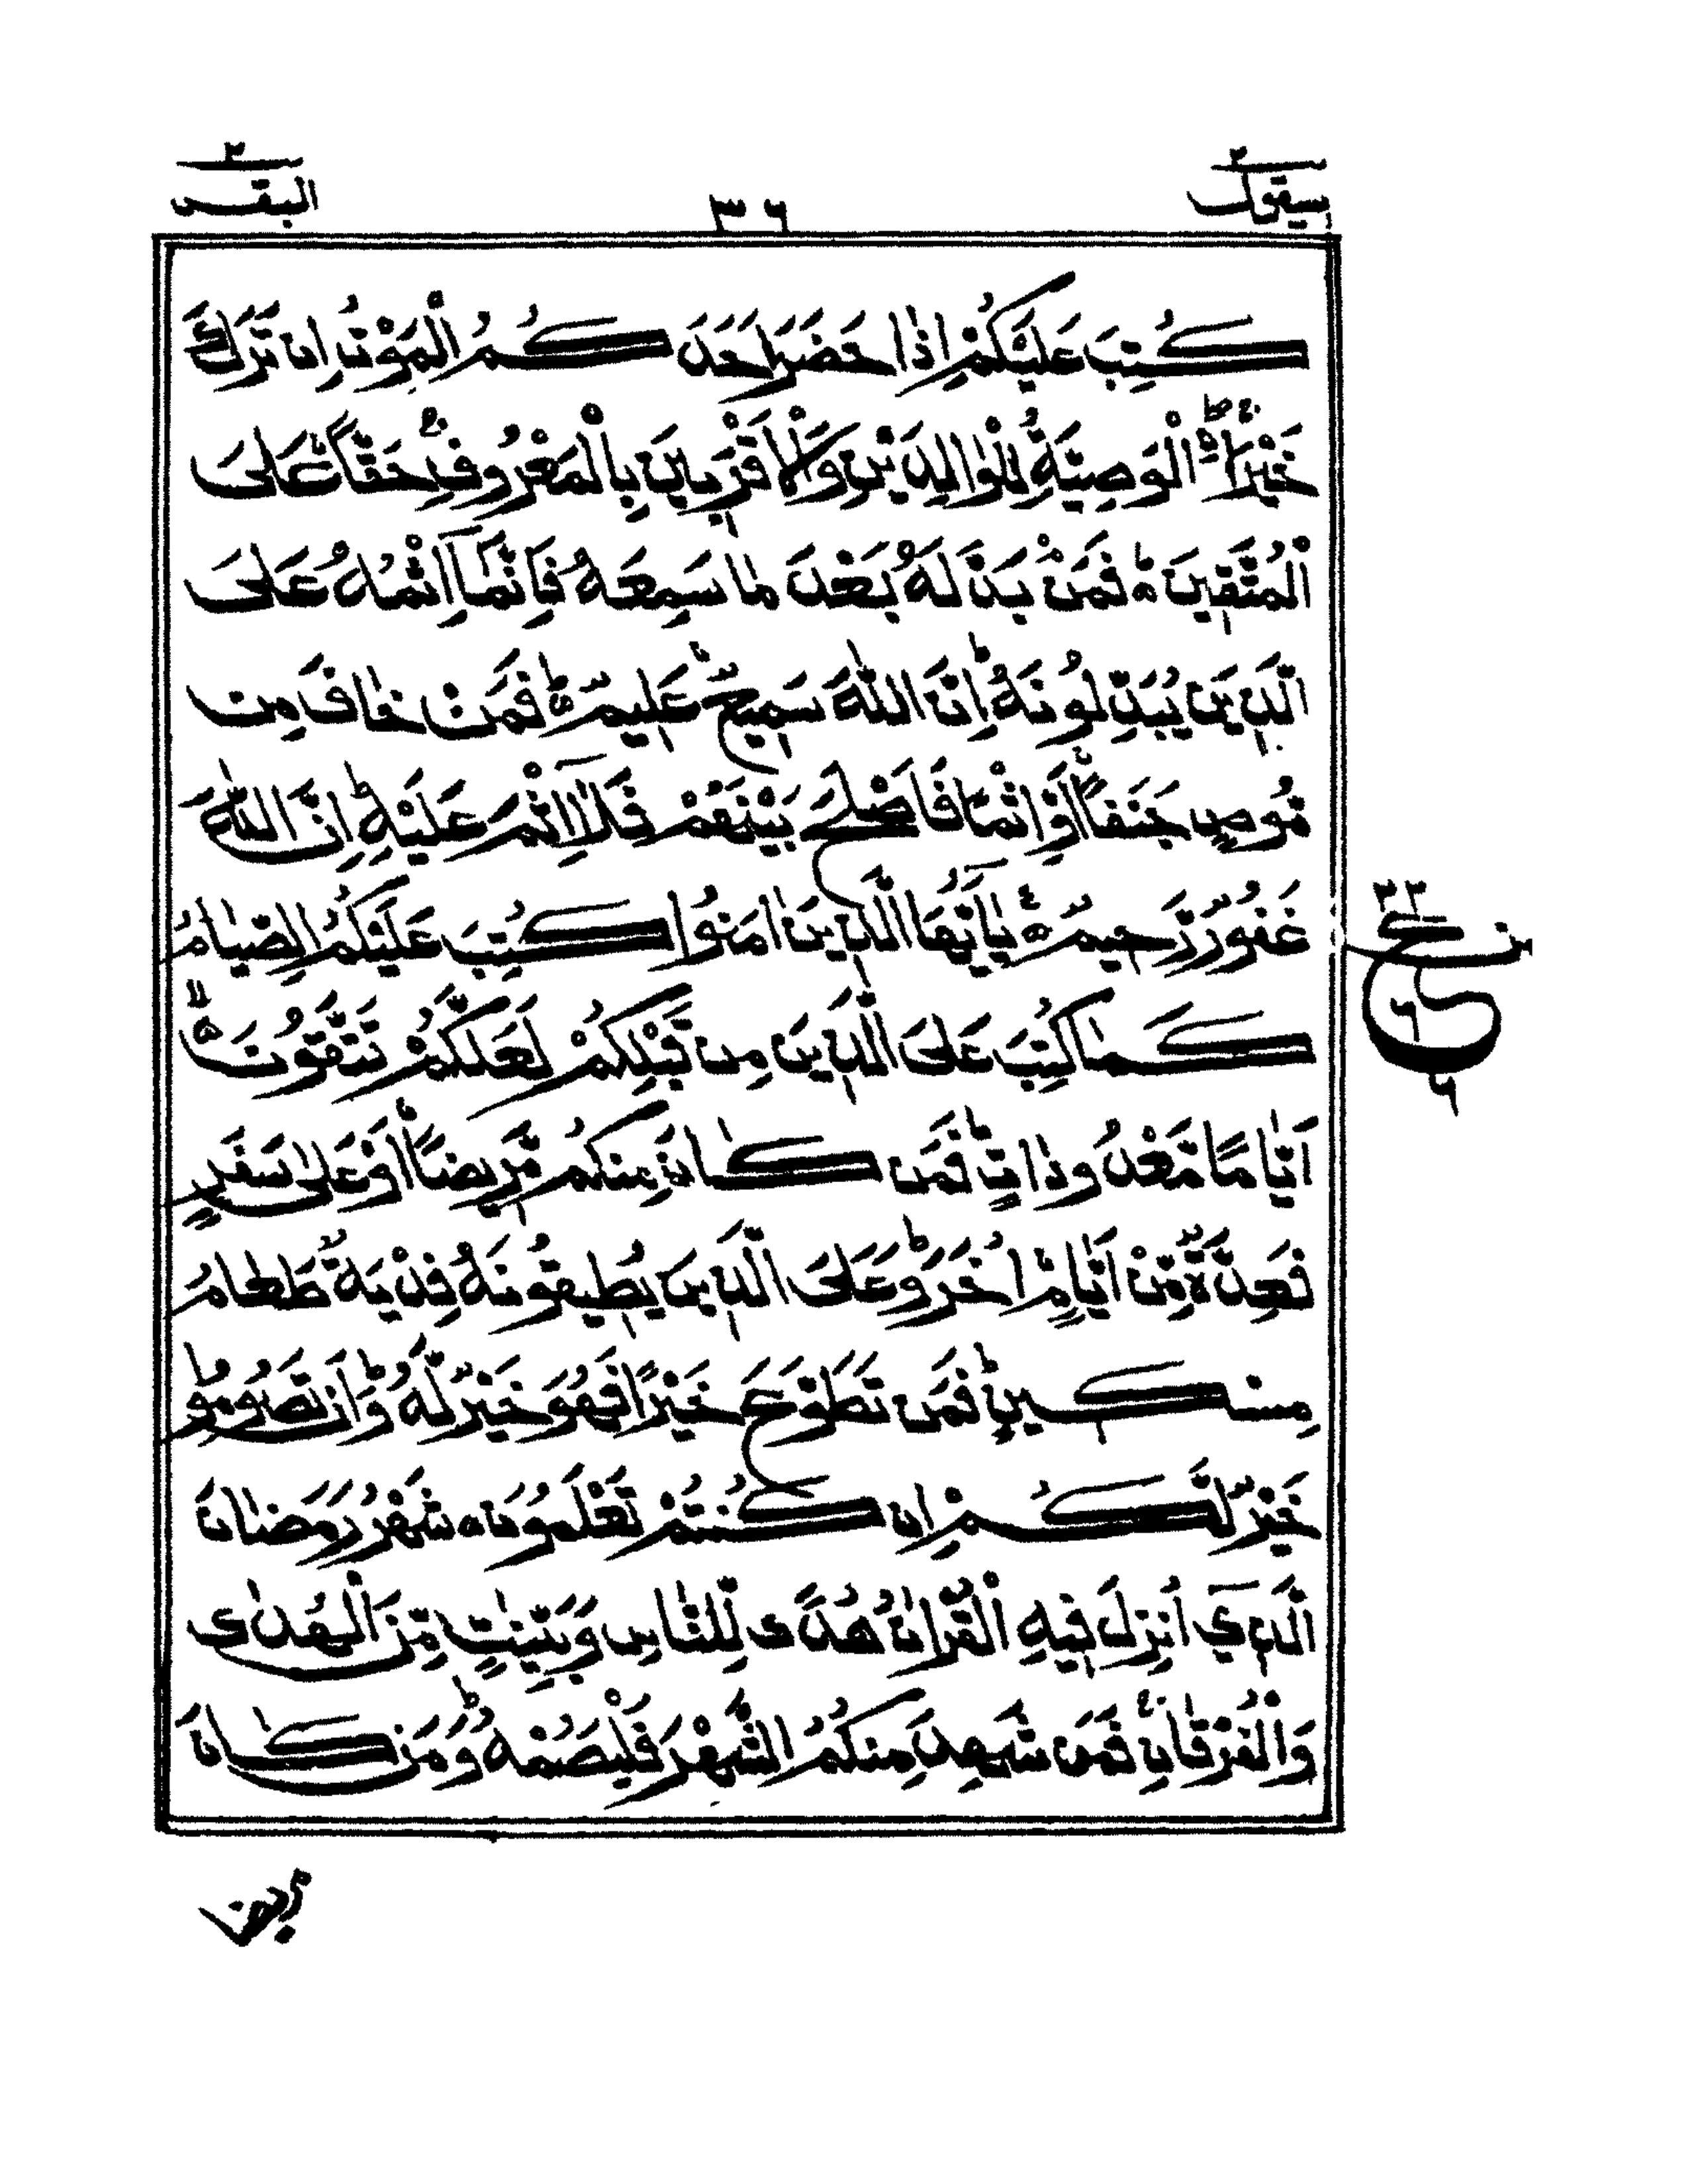 سیقول ۲
۳۶
البقرة ۲
كُتِبَ عَلَيْكُمْ اِذَا حَضَرَ اَحَدَكُمُ الْمَوْتُ اِنْ تَرَكَ
خَيْرَاۨ ۚۖ الْوَصِيَّةُ لِلْوَالِدَيْنِ وَالْاَقْرَبِيْنَ بِالْمَعْرُوْفِ ۚ حَقًّا عَلَى
الْمُتَّقِيْنَ ؕ فَمَنْۢ بَدَّلَهٗ بَعْدَ مَا سَمِعَهٗ فَاِنَّمَاۤ اِثْمُهٗ عَلَى
الَّذِيْنَ يُبَدِّلُوْنَهٗ ؕ اِنَّ اللّٰهَ سَمِيْعٌ عَلِيْمٌ ؕ فَمَنْ خَافَ مِنْ
مُّوْصٍ جَنَفًا اَوْ اِثْمًا فَاَصْلَحَ بَيْنَهُمْ فَلَاۤ اِثْمَ عَلَيْهِ ؕ اِنَّ اللّٰهَ
غَفُوْرٌ رَّحِيْمٌ ۠ يٰۤاَيُّهَا الَّذِيْنَ اٰمَنُوْا كُتِبَ عَلَيْكُمُ الصِّيَامُ
كَمَا كُتِبَ عَلَى الَّذِيْنَ مِنْ قَبْلِكُمْ لَعَلَّكُمْ تَتَّقُوْنَ ۙ
اَيَّامًا مَّعْدُوْدٰتٍ ؕ فَمَنْ كَانَ مِنْكُمْ مَّرِيْضًا اَوْ عَلٰى سَفَرٍ
فَعِدَّةٌ مِّنْ اَيَّامٍ اُخَرَ ؕ وَعَلَى الَّذِيْنَ يُطِيْقُوْنَهٗ فِدْيَةٌ طَعَامُ
مِسْكِيْنٍ ؕ فَمَنْ تَطَوَّعَ خَيْرًا فَهُوَ خَيْرٌ لَّهٗ ؕ وَاَنْ تَصُوْمُوْا
خَيْرٌ لَّكُمْ اِنْ كُنْتُمْ تَعْلَمُوْنَ ۝ شَهْرُ رَمَضَانَ
الَّذِيْۤ اُنْزِلَ فِيْهِ الْقُرْاٰنُ هُدًى لِّلنَّاسِ وَبَيِّنٰتٍ مِّنَ الْهُدٰى
وَالْفُرْقَانِ ۚ فَمَنْ شَهِدَ مِنْكُمُ الشَّهْرَ فَلْيَصُمْهُ ؕ وَمَنْ كَانَ
ع
۶
۶
مريضا